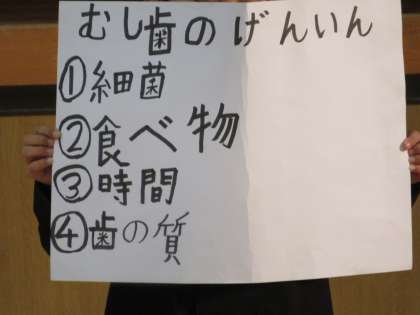 むし歯のげんいん
①細菌
②食べ物
③時間
④歯の質